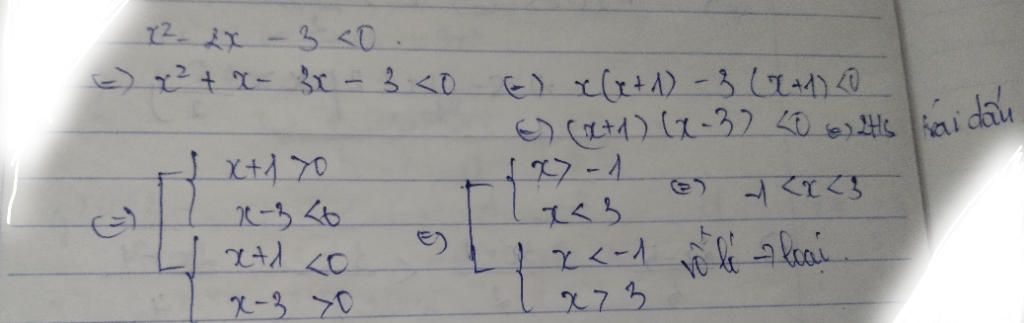 x² - 2x - 3 <0.
(=) x² + x - 3x - 3 <0 (=) x(x+1) - 3(x+1) <0
(=) (x+1)(x-3) <0 (=) 2HS trái dấu
(=) x+1 >0
x-3 <0
x+1 <0
x-3 >0
(=) x > -1
x < 3
(=) -1 <x <3
x < -1
x > 3
vô lí → loại.